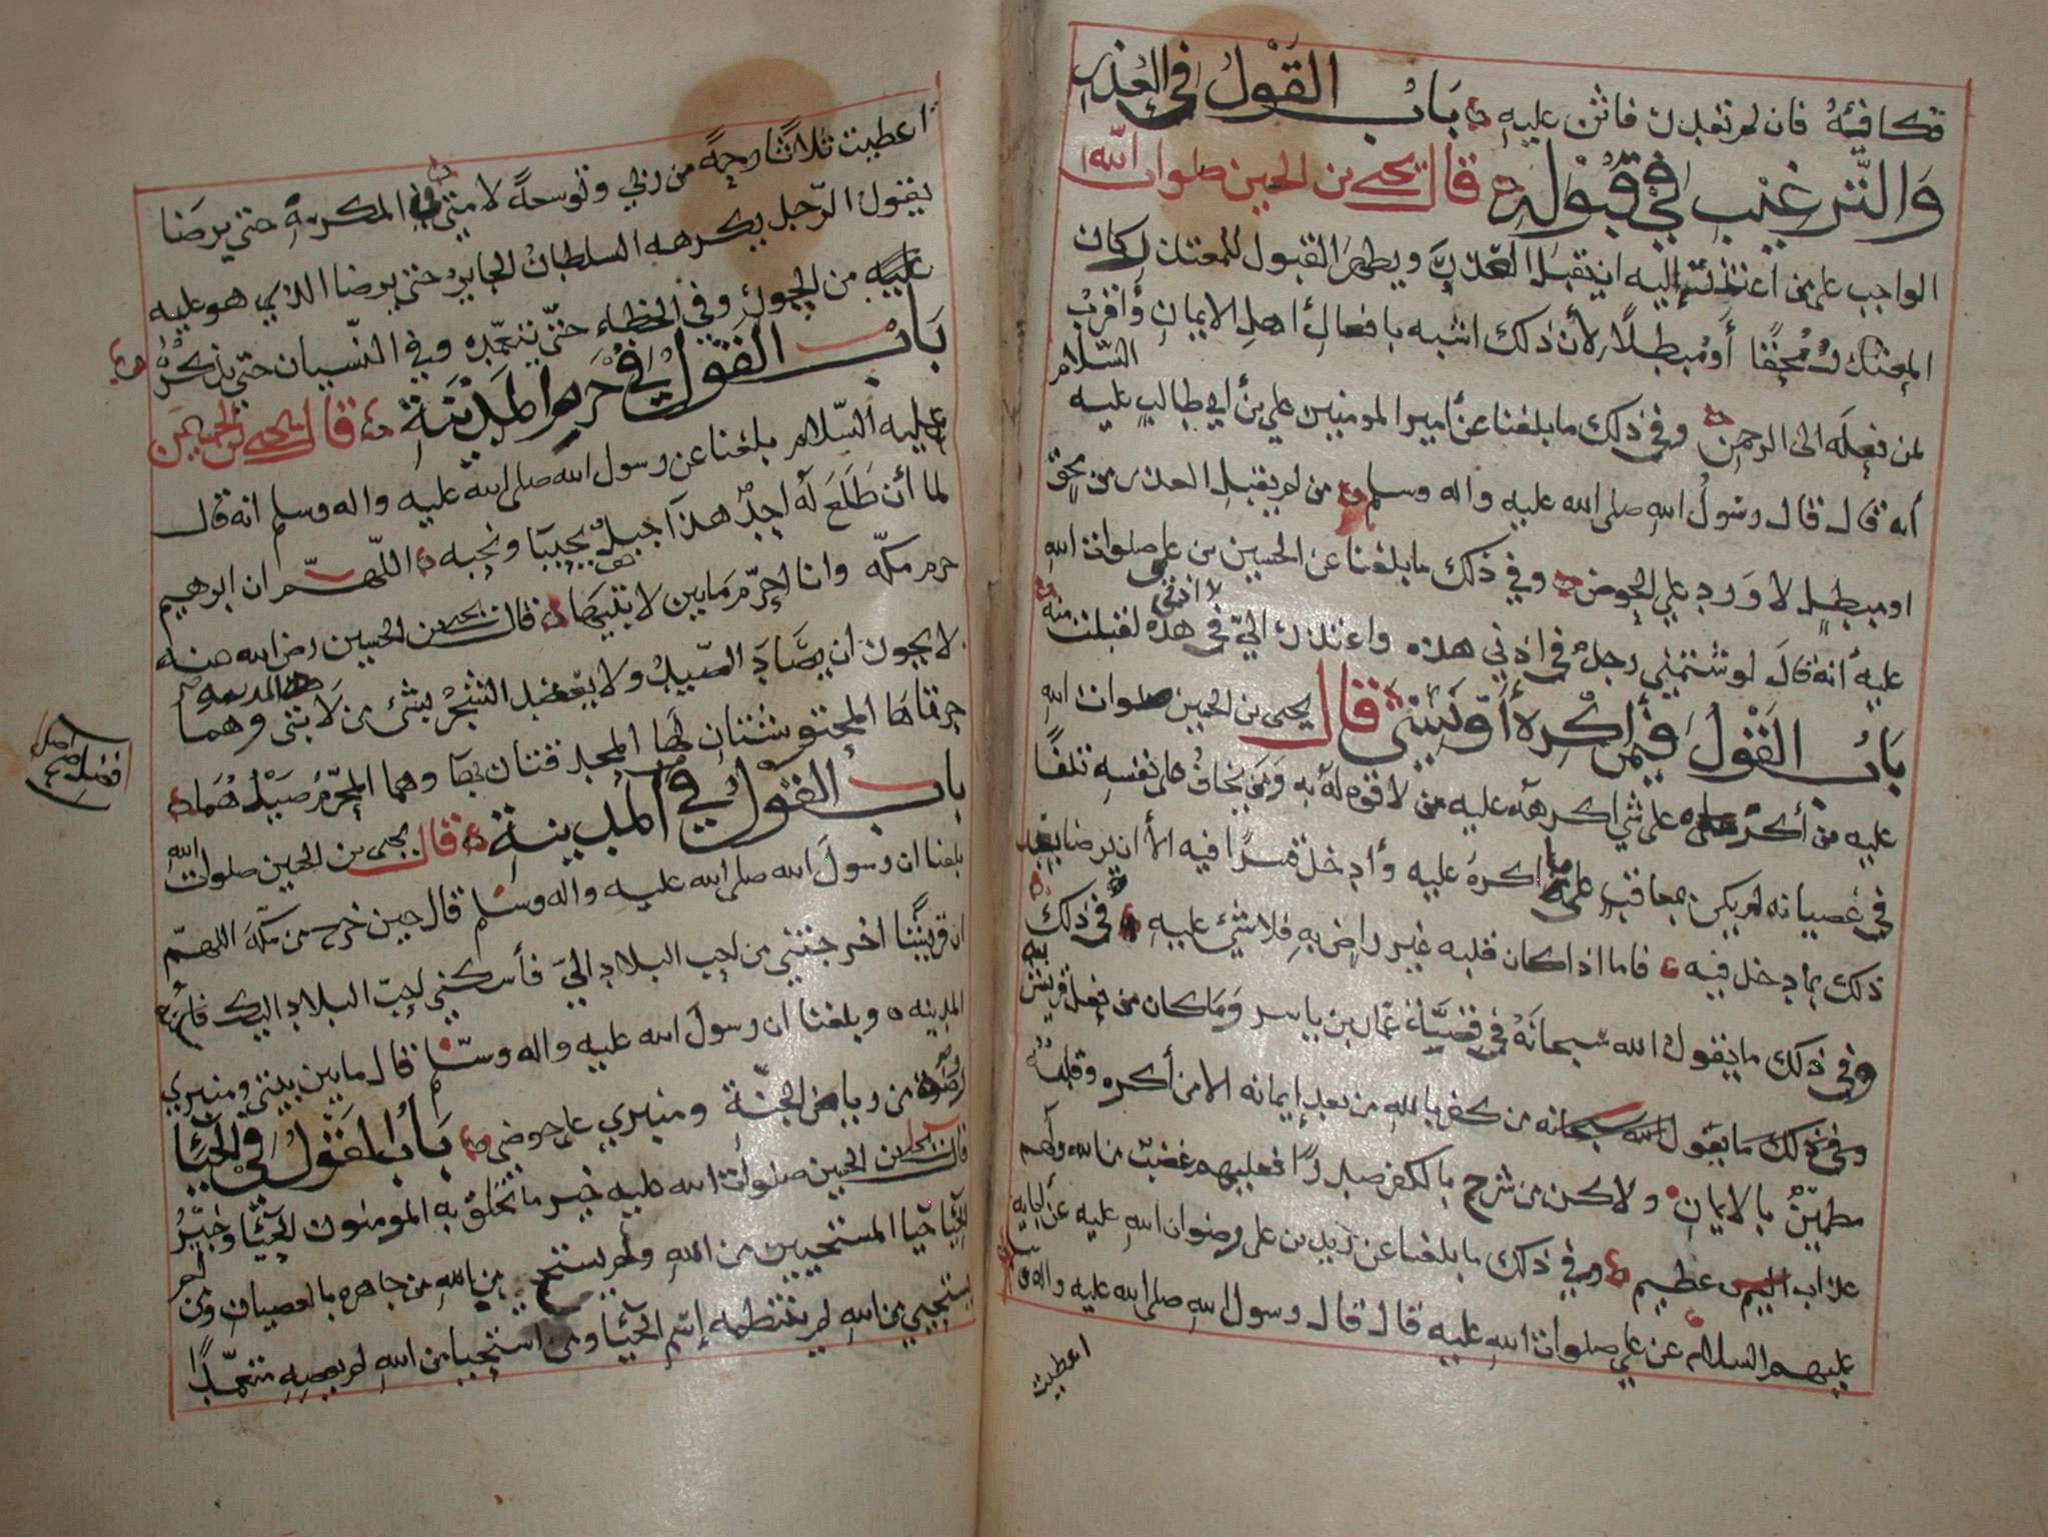 فكافيه فان لم تقدر فاثن عليه باب القول في العذر
والترغيب في قبوله قال يحيى بن الحسين صلوات الله
الواجب على من اعتذر إليه ان يقبل العذر ويظهر القبول للمعتذر كان
المعتذر محقًا أو مبطلًا لأن ذلك اشبه بافعال أهل الايمان وأقرب
لمن فعله الى الرحمن وفي ذلك ما بلغنا عن أمير المومنين علي بن أبي طالب عليه السلام
أنه قال قال رسول الله صلى الله عليه واله وسلم من لم يقبل العذر من محق
او مبطل لا ورد علي الحوض وفي ذلك ما بلغنا عن الحسين بن علي صلوات الله
عليه أنه قال لو شتمني رجل في اذني هذه واعتذر الي في هذه لقبلت منه
باب القول فيمن أكره قال يحيى بن الحسين صلوات الله
عليه من أكره على شي اكرهه عليه من لا قوه له به ومن يخاف على نفسه تلفًا
في عصيانه لم يكن بمعاقب على ما اكره عليه وأدخل قسرًا فيه الا أن يرضا بعد
ذلك بما دخل فيه فاما اذا كان قلبه غير راض به فلا شئ عليه في ذلك
وفي ذلك ما يقول الله سبحانه في عمار بن ياسر وما كان من فعل قريش به
وفي ذلك ما يقول الله سبحانه من كفر بالله من بعد إيمانه الا من أكره وقلبه
مطمين بالايمان ولاكن من شرح بالكفر صدرًا فعليهم غضب من الله ولهم
عذاب عظيم وفي ذلك ما بلغنا عن زيد بن علي رضوان الله عليه عن ابايه
عليهم السلام عن علي صلوات الله عليه قال قال رسول الله صلى الله عليه واله وسلم
اعطيت
اعطيت ثلاثا رحمة من ربي وتوسعة لامتي في المكره حتى يرضا
يقول الرجل يكرهه السلطان الجاير حتى يرضا الذي هو عليه
عليه من الجور وفي الخطاء حتى يتعمد وفي النسيان حتى يذكر
باب القول في حرم المدينة قال يحيى بن الحسين
عليه السلام بلغنا عن رسول الله صلى الله عليه واله وسلم انه قال
لما أن طلع له احد هذا جبل يحبنا ونحبه اللهم ان ابرهيم
حرم مكه وانا احرم ما بين لابتيها قال يحيى بن الحسين رضي الله عنه
لا يجوز ان يصاد الصيد ولا يعضد الشجر بشئ من لابتي المدينه وهما
حرتاها المحتوشتان لها وهما المحرم صيدهما
باب القول في المدينة قال يحيى بن الحسين صلوات الله
بلغنا ان رسول الله صلى الله عليه واله وسلم قال حين خرج من مكة اللهم
ان قريشًا اخرجتني من احب البلاد الي فأسكني احب البلاد اليك
المدينه وبلغنا ان رسول الله عليه واله وسلم قال ما بين بيتي ومنبري
روضة من رياض الجنة ومنبري على حوضي باب القول في الحيا
قال يحيى بن الحسين صلوات الله عليه خير ما تخلق به المومنون الحيا وخير
الحيا حيا المستحيين من الله ولم يستح من الله من جاهره بالعصيان ومن لم
يستحي من الله لم ينتظمه إسم الحيا ومن استحيا من الله لم يعصه متعمدًا